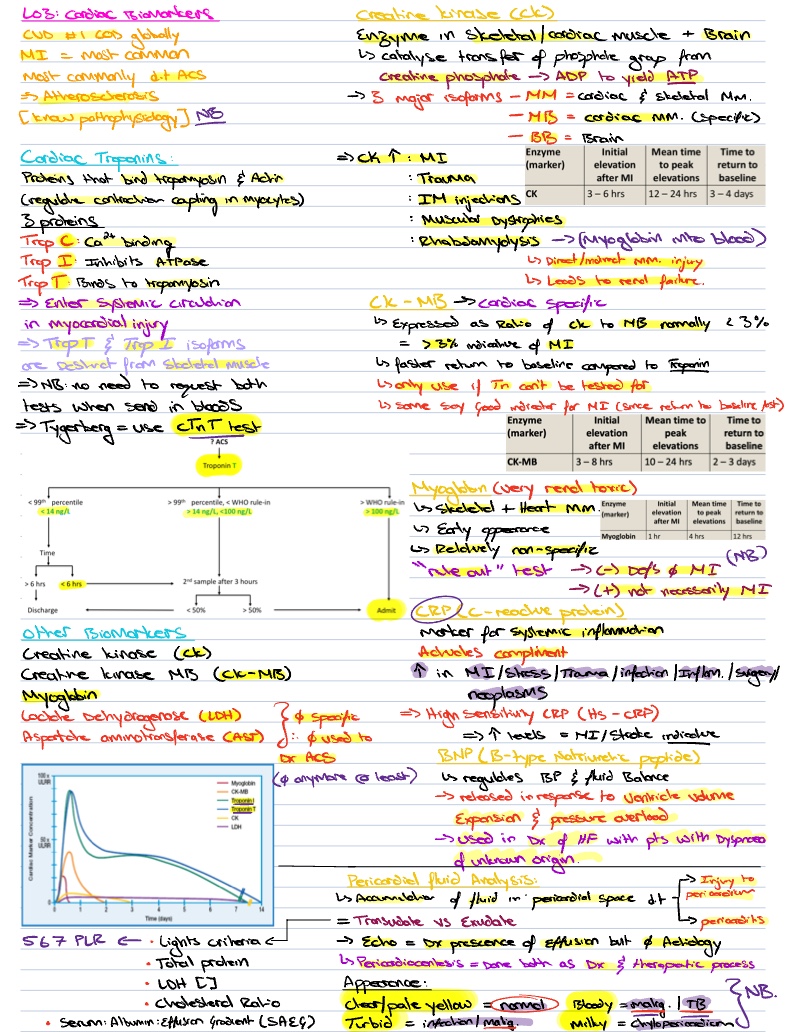 LO3: Cardiac Biomarkers
CVD #1 COD globally
MI = most common
Most commonly d.t ACS
=> Atherosclerosis
[know pathophysiology] NB
Cardiac Troponins:
Proteins that bind tropomyosin & Actin
(regulate contraction coupling in myocytes)
3 proteins
Trop C: Ca2+ binding
Trop I: Inhibits ATPase
Trop T: Binds to tropomyosin
=> Enter Systemic circulation
in myocardial injury
=> Trop T & Trop I isoforms
are Destinct from Skeletal muscle
=> NB: no need to request both
tests when send in bloods
=> Tygerberg = use cTnT test
? ACS
Troponin T
< 99th percentile
< 14 ng/L
> 99th percentile, < WHO rule-in
> 14 ng/L, <100 ng/L
> WHO rule-in
> 100 ng/L
Time
> 6 hrs
< 6 hrs
2nd sample after 3 hours
Discharge
< 50%
> 50%
Admit
Other Biomarkers
Creatine kinase (CK)
Creatine kinase MB (CK-MB)
Myoglobin
Lactate Dehydrogenase (LDH)
Aspartate aminotransferase (AST)
ϕ specific
∴ ϕ used to
Dx ACS
(ϕ anymore @ least)
Cardiac Marker Concentration
100 x
ULRR
50 x
ULRR
0
Myoglobin
CK-MB
Troponin I
Troponin T
CK
LDH
0 1 2 3 4 5 6 7 8 14
Time (days)
567 PLR <- • Lights criteria
• Total protein
• LDH []
• Cholesterol Ratio
• Serum: Albumin: Effusion Gradient (SAEG)
Creatine kinase (CK)
Enzyme in Skeletal/cardiac muscle + Brain
↳ catalyse transfer of phosphate group from
creatine phosphate -> ADP to yield ATP
-> 3 major isoforms - MM = cardiac & skeletal Mm.
- MB = cardiac mm. (specific)
- BB = Brain
=> CK ↑ : MI
: Trauma
: IM injections
: Muscular Dystrophies
: Rhabdomyolysis -> (Myoglobin into blood)
↳ Direct/indirect mm. injury
↳ Leads to renal failure.
Enzyme (marker) Initial elevation after MI Mean time to peak elevations Time to return to baseline
CK 3 – 6 hrs 12 – 24 hrs 3 – 4 days
CK - MB -> cardiac specific
↳ Expressed as Ratio of CK to MB normally < 3%
= > 3% indicative of MI
↳ faster return to baseline compared to Troponin
↳ only use if Tn can't be tested for
↳ some say good indicator for MI (since return to baseline fast)
Enzyme (marker) Initial elevation after MI Mean time to peak elevations Time to return to baseline
CK-MB 3 – 8 hrs 10 – 24 hrs 2 – 3 days
Myoglobin (very renal toxic)
↳ Skeletal + Heart mm.
↳ Early appearance
↳ Relatively non-specific
Enzyme (marker) Initial elevation after MI Mean time to peak elevations Time to return to baseline
Myoglobin 1 hr 4 hrs 12 hrs
(NB)
"rule out" test -> (-) Defs ϕ MI
-> (+) not necessarily MI
CRP (C-reactive protein)
Marker for systemic inflammation
Activates compliment
↑ in MI/Stress/Trauma/infection/Inflam./surgery/
neoplasms
=> High sensitivity CRP (Hs-CRP)
=> ↑ levels = MI/Stroke indicative
BNP (B-type Natriuretic peptide)
↳ regulates BP & fluid Balance
-> released in response to ventricle volume
Expansion & pressure overload
-> used in Dx of HF with pts with Dyspnoea
of unknown origin.
Pericardial fluid Analysis:
↳ Accumulation of fluid in pericardial space d.t -> Injury to pericardium
-> pericarditis
= Transudate vs Exudate
-> Echo = Dx prescence of effusion but ϕ Aetiology
↳ Pericardiocentesis = Done both as Dx & therapeutic process
Appearance:
clear/pale yellow = normal Bloody = malig. / TB
Turbid = infection/malig. Milky = chylopericardium
NB.